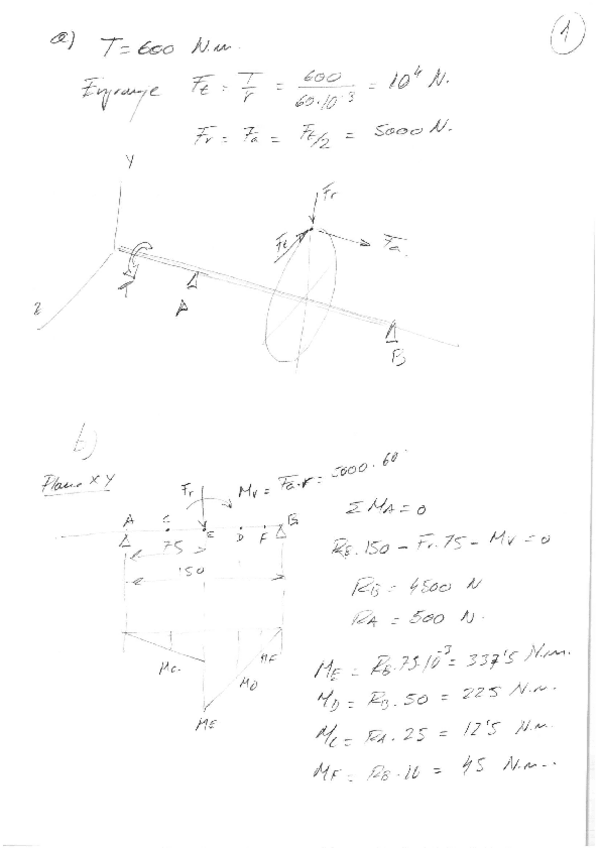 1
a) T = 600 N.m.
Engrange Ft = T/r = 600/60·10^-3 = 10^4 N.
Fr = Fa = Ft/2 = 5000 N.
Y
Fr
Ft
Fa.
T
Z
A
B
b)
Plano XY
Fr
Mv = Fa.r = 5000.60
ΣMA = 0
A C E D F B
75
150
RB.150 - Fr.75 - Mv = 0
RB = 4500 N
RA = 500 N.
Mc.
MD
MF
ME
ME = RB.75.10^-3 = 337'5 N.m.
MD = RB.50 = 225 N.m.
MC = RA.25 = 12'5 N.m.
MF = RB.10 = 45 N.m.